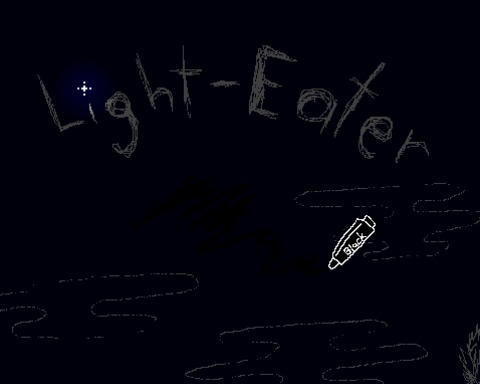 Light-Eater
Black